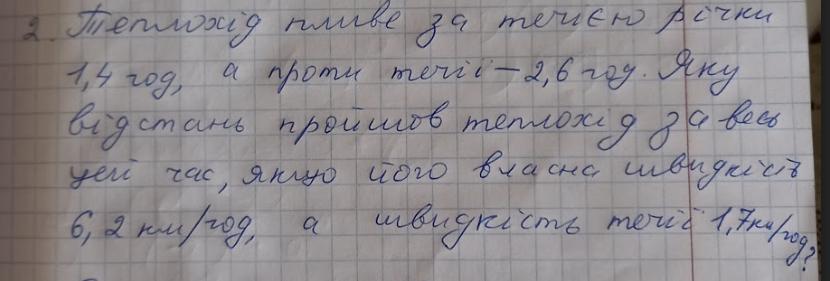 2. Теплохід пливе за течією річки
1,4 год, а проти течії – 2,6 год. Яку
відстань пройшов теплохід за весь
цей час, якщо його власна швидкість
6,2 км/год, а швидкість течії 1,7 км/год?